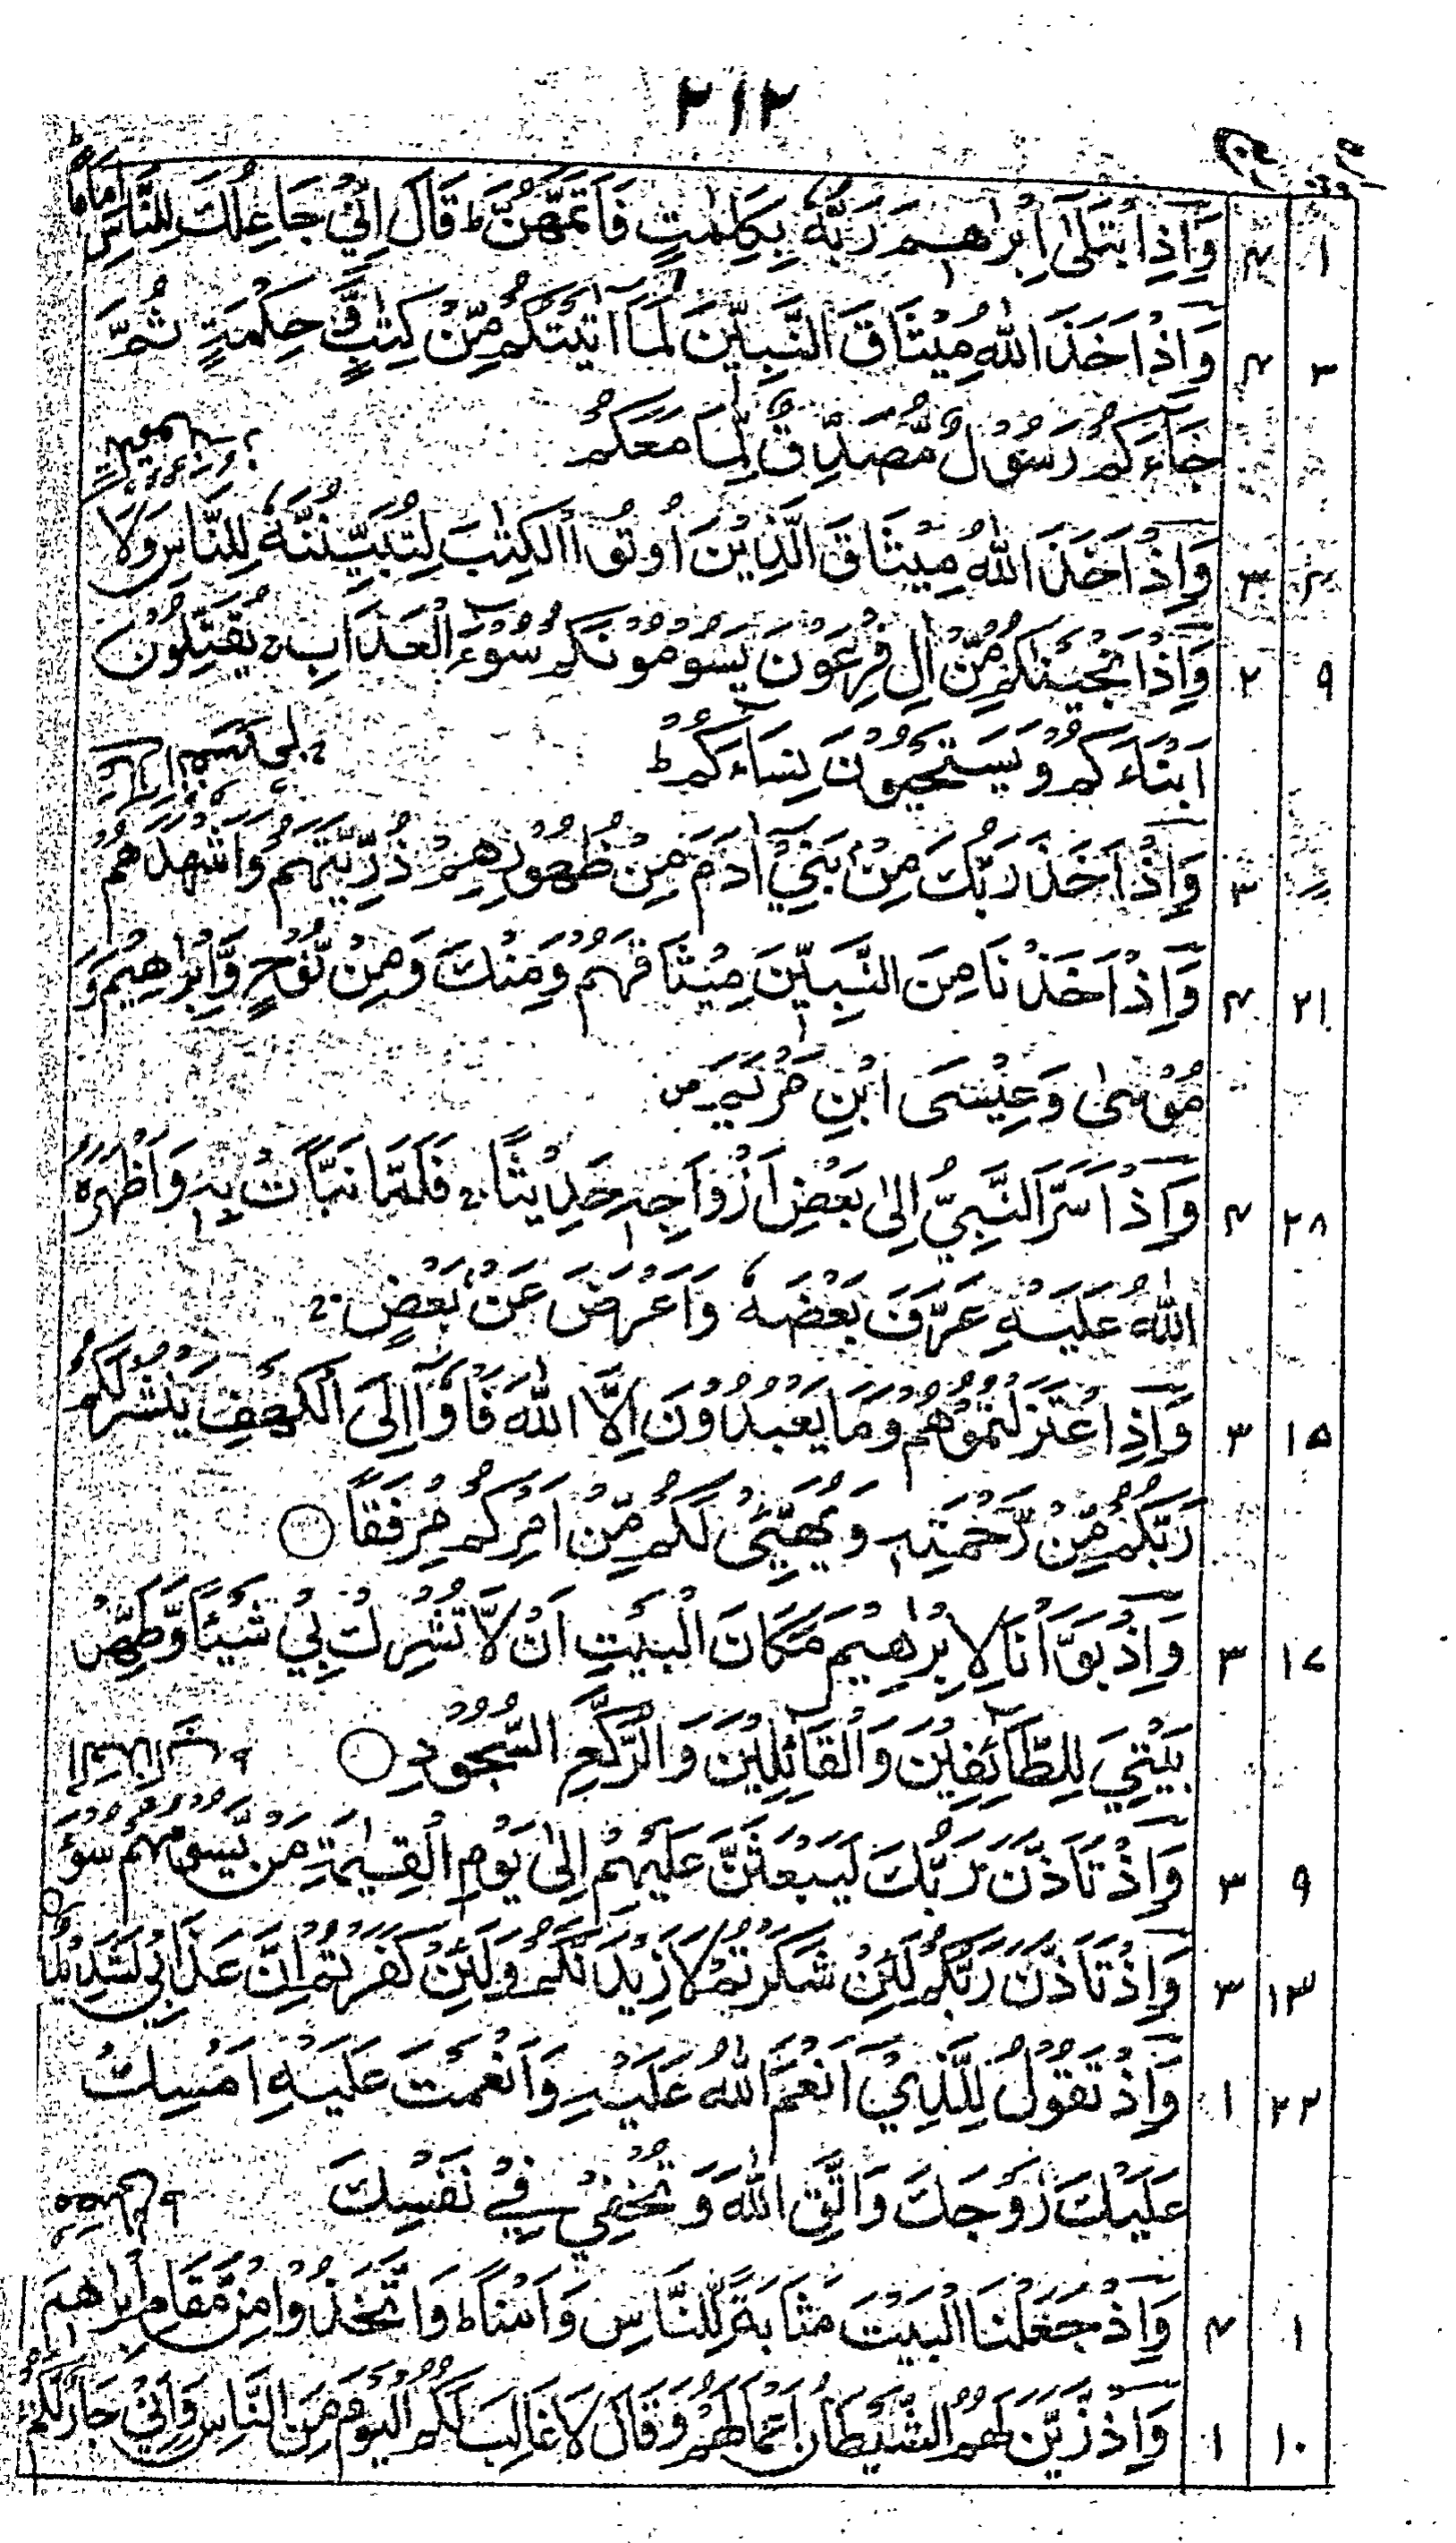 ۲۱۲
۱ ۴ وَاِذِ ابْتَلٰٓى اِبْرٰهٖمَ رَبُّهٗ بِكَلِمٰتٍ فَاَتَمَّهُنَّ ؕ قَالَ اِنِّيْ جَاعِلُكَ لِلنَّاسِ اِمَامًا ؕ
۳ ۴ وَاِذْ اَخَذَ اللّٰهُ مِيْثَاقَ النَّبِيّٖنَ لَمَآ اٰتَيْتُكُمْ مِّنْ كِتٰبٍ وَّحِكْمَةٍ ثُمَّ
جَآءَكُمْ رَسُوْلٌ مُّصَدِّقٌ لِّمَا مَعَكُمْ
۴ ۳ وَاِذْ اَخَذَ اللّٰهُ مِيْثَاقَ الَّذِيْنَ اُوْتُوا الْكِتٰبَ لَتُبَيِّنُنَّهٗ لِلنَّاسِ وَلَا
۹ ۲ وَاِذْ اَنْجَيْنٰكُمْ مِّنْ اٰلِ فِرْعَوْنَ يَسُوْمُوْنَكُمْ سُوْٓءَ الْعَذَابِ ۚ يُقَتِّلُوْنَ
اَبْنَآءَكُمْ وَيَسْتَحْيُوْنَ نِسَآءَكُمْ ؕ
۳ وَاِذْ اَخَذَ رَبُّكَ مِنْۢ بَنِيْٓ اٰدَمَ مِنْ ظُهُوْرِهِمْ ذُرِّيَّتَهُمْ وَاَشْهَدَهُمْ
۲۱ ۴ وَاِذْ اَخَذْنَا مِنَ النَّبِيّٖنَ مِيْثَاقَهُمْ وَمِنْكَ وَمِنْ نُّوْحٍ وَّاِبْرٰهِيْمَ وَ
مُوْسٰى وَعِيْسَى ابْنِ مَرْيَمَ ص
۲۸ ۴ وَاِذْ اَسَرَّ النَّبِيُّ اِلٰى بَعْضِ اَزْوَاجِهٖ حَدِيْثًا ۚ فَلَمَّا نَبَّاَتْ بِهٖ وَاَظْهَرَهُ
اللّٰهُ عَلَيْهِ عَرَّفَ بَعْضَهٗ وَاَعْرَضَ عَنْۢ بَعْضٍ ۚ
۱۵ ۳ وَاِذِ اعْتَزَلْتُمُوْهُمْ وَمَا يَعْبُدُوْنَ اِلَّا اللّٰهَ فَاْوٗٓا اِلَى الْكَهْفِ يَنْشُرْ لَكُمْ
رَبُّكُمْ مِّنْ رَّحْمَتِهٖ وَيُهَيِّئْ لَكُمْ مِّنْ اَمْرِكُمْ مِّرْفَقًا ○
۱۷ ۳ وَاِذْ بَوَّاْنَا لِاِبْرٰهِيْمَ مَكَانَ الْبَيْتِ اَنْ لَّا تُشْرِكْ بِيْ شَيْـًٔا وَّطَهِّرْ
بَيْتِيَ لِلطَّآئِفِيْنَ وَالْقَآئِمِيْنَ وَالرُّكَّعِ السُّجُوْدِ ○
۹ ۳ وَاِذْ تَاَذَّنَ رَبُّكَ لَيَبْعَثَنَّ عَلَيْهِمْ اِلٰى يَوْمِ الْقِيٰمَةِ مَنْ يَّسُوْمُهُمْ سُوْٓءَ
۱۳ ۳ وَاِذْ تَاَذَّنَ رَبُّكُمْ لَئِنْ شَكَرْتُمْ لَاَزِيْدَنَّكُمْ وَلَئِنْ كَفَرْتُمْ اِنَّ عَذَابِيْ لَشَدِيْدٌ ○
۲۲ ۱ وَاِذْ تَقُوْلُ لِلَّذِيْٓ اَنْعَمَ اللّٰهُ عَلَيْهِ وَاَنْعَمْتَ عَلَيْهِ اَمْسِكْ
عَلَيْكَ زَوْجَكَ وَاتَّقِ اللّٰهَ وَتُخْفِيْ فِيْ نَفْسِكَ
۱ ۴ وَاِذْ جَعَلْنَا الْبَيْتَ مَثَابَةً لِّلنَّاسِ وَاَمْنًا ؕ وَاتَّخِذُوْا مِنْ مَّقَامِ اِبْرٰهٖمَ
۱۰ ۱ وَاِذْ زَيَّنَ لَهُمُ الشَّيْطَانُ اَعْمَالَهُمْ وَقَالَ لَا غَالِبَ لَكُمُ الْيَوْمَ مِنَ النَّاسِ وَاِنِّيْ جَارٌ لَّكُمْ